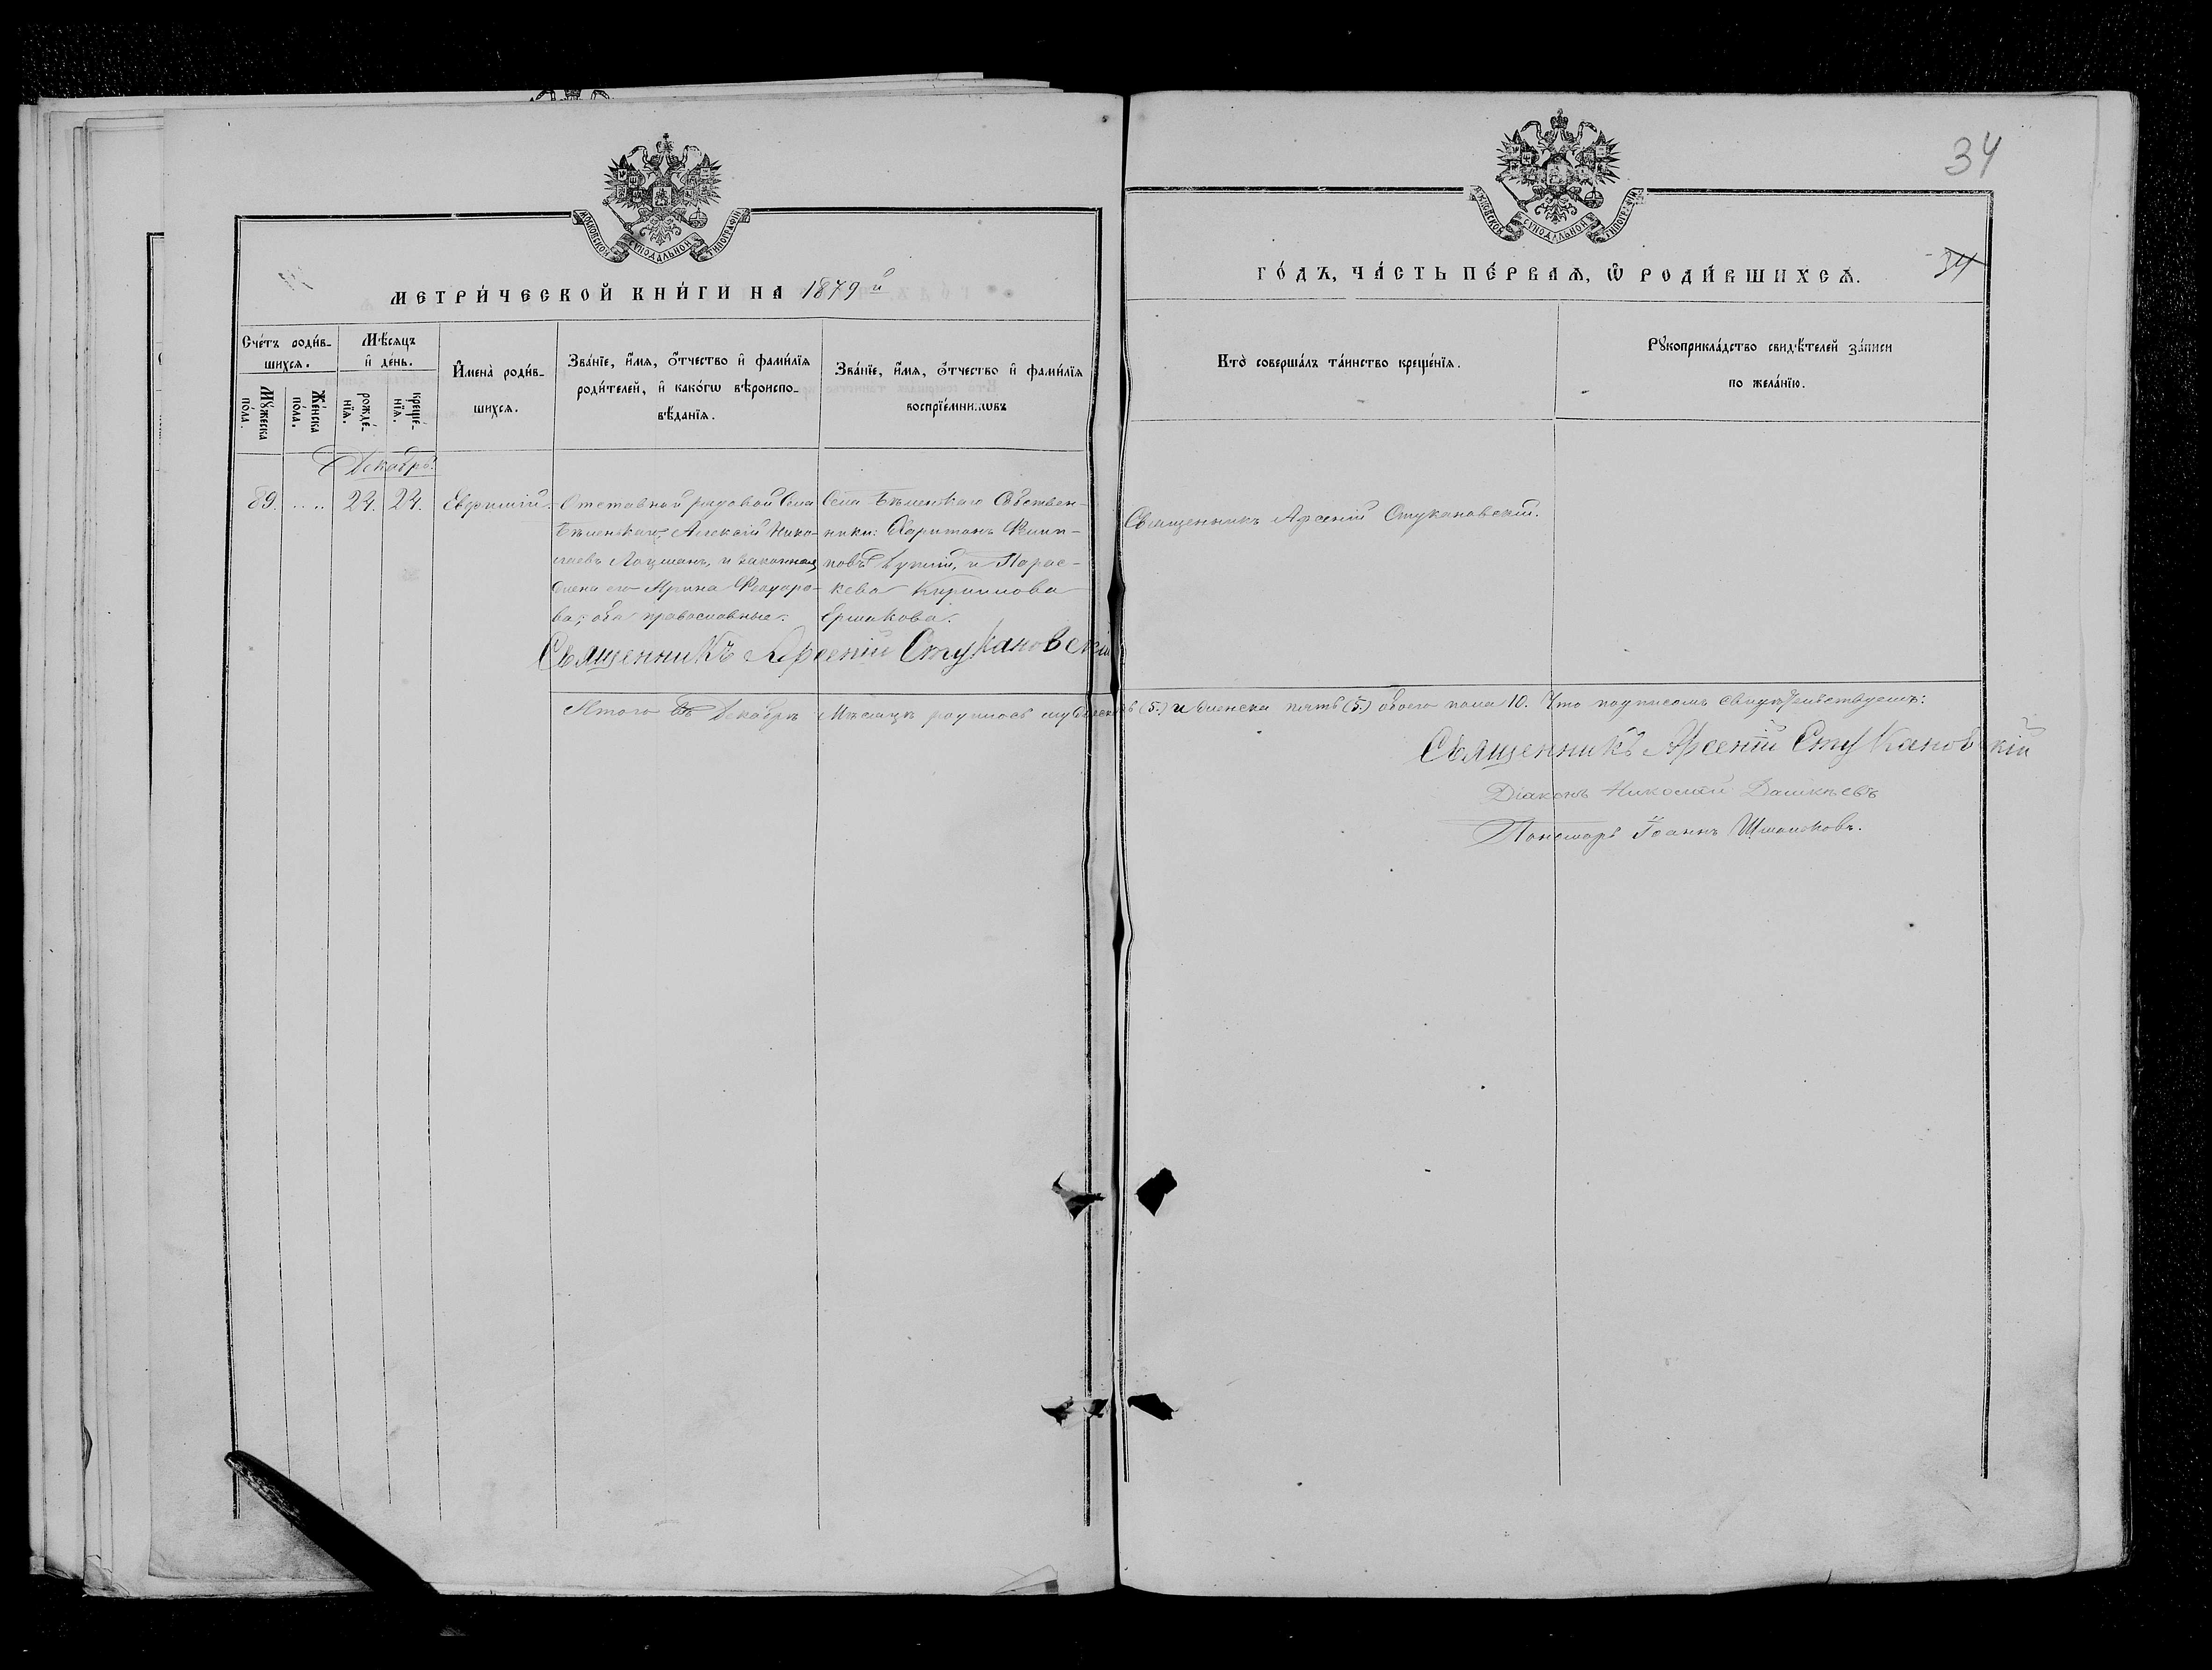 34
34
МОСКОВСКОЙ СѴНОДАЛЬНОЙ ТИПОГРАФІИ
МОСКОВСКОЙ СѴНОДАЛЬНОЙ ТИПОГРАФІИ
МЕТРИ́ЧЕСКОЙ КНИ́ГИ НА 1879й
ГО́ДЪ, ЧА́СТЬ ПЕ́РВАѦ, Ѿ РОДИ́ВШИХСѦ.
Сче́тъ роди́в-
шихсѧ.
Мꙋ́жеска
по́ла.
Же́нска
по́ла.
Мѣ́сѧцъ
и҆ де́нь.
рожде́-
нїѧ.
креще́-
нїѧ.
И҆мена̀ роди́в-
шихсѧ.
Зва́нїе, и҆́мѧ, ѻ҆́тчество и҆ фами́лїѧ
роди́телей, и҆ како́гѡ вѣроиспо-
вѣ́данїѧ.
Зва́нїе, и҆́мѧ, ѻ҆́тчество и҆ фами́лїѧ
воспрїе́мникѡвъ
Кто̀ соверша́лъ та́инство креще́нїѧ.
Рꙋкоприкла́дство свидѣ́телей за́писи
по жела́нїю.
Декабрь.
89. .. .. 24. 24. Евфимій.
Отставной рядовой Села
Алексій Нико-
лаевъ Лоцманъ, и законная
жена его Ирина Феодоро-
ва; оба православные.
Села Собствен-
ники: Харитонъ Филип-
повъ и Парас-
кева Кириллова
Ермакова.
Священникъ Арсеній Стукановскій.
Священникъ Арсеній Стукановскій
Итого въ Декабрѣ Мѣсяцѣ родилось мужеска (5.) и женска пять (5.) обоего пола 10. Что подписомъ свидѣтельствуемъ:
Священникъ Арсеній Стукановскій
Діаконъ Николай Дашкѣевъ
Пономарь Іоаннъ